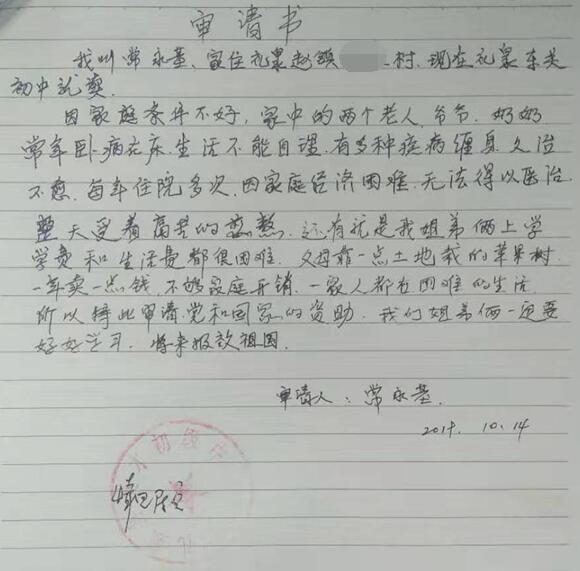 审请书
我叫常永基、家住礼泉赵镇 村、现在礼泉东关
初中就读
因家庭条件不好，家中的两个老人，爷爷、奶奶
常年卧病在床、生活不能自理、有多种疾病缠身、久治
不愈、每年住院多次、因家庭经济困难、无法得以医治
整天受着痛苦的煎熬、还有就是我姐弟俩上学
学费和生活费都很困难、父母靠一点土地栽的苹果树
一年卖一点钱、不够家庭开销、一家人都在困难的生活
所以特此审请、党和国家的资助、我们姐弟俩一定要
好好学习、将来报效祖国、
审请人：常永基、
10.14
情况属实
初级